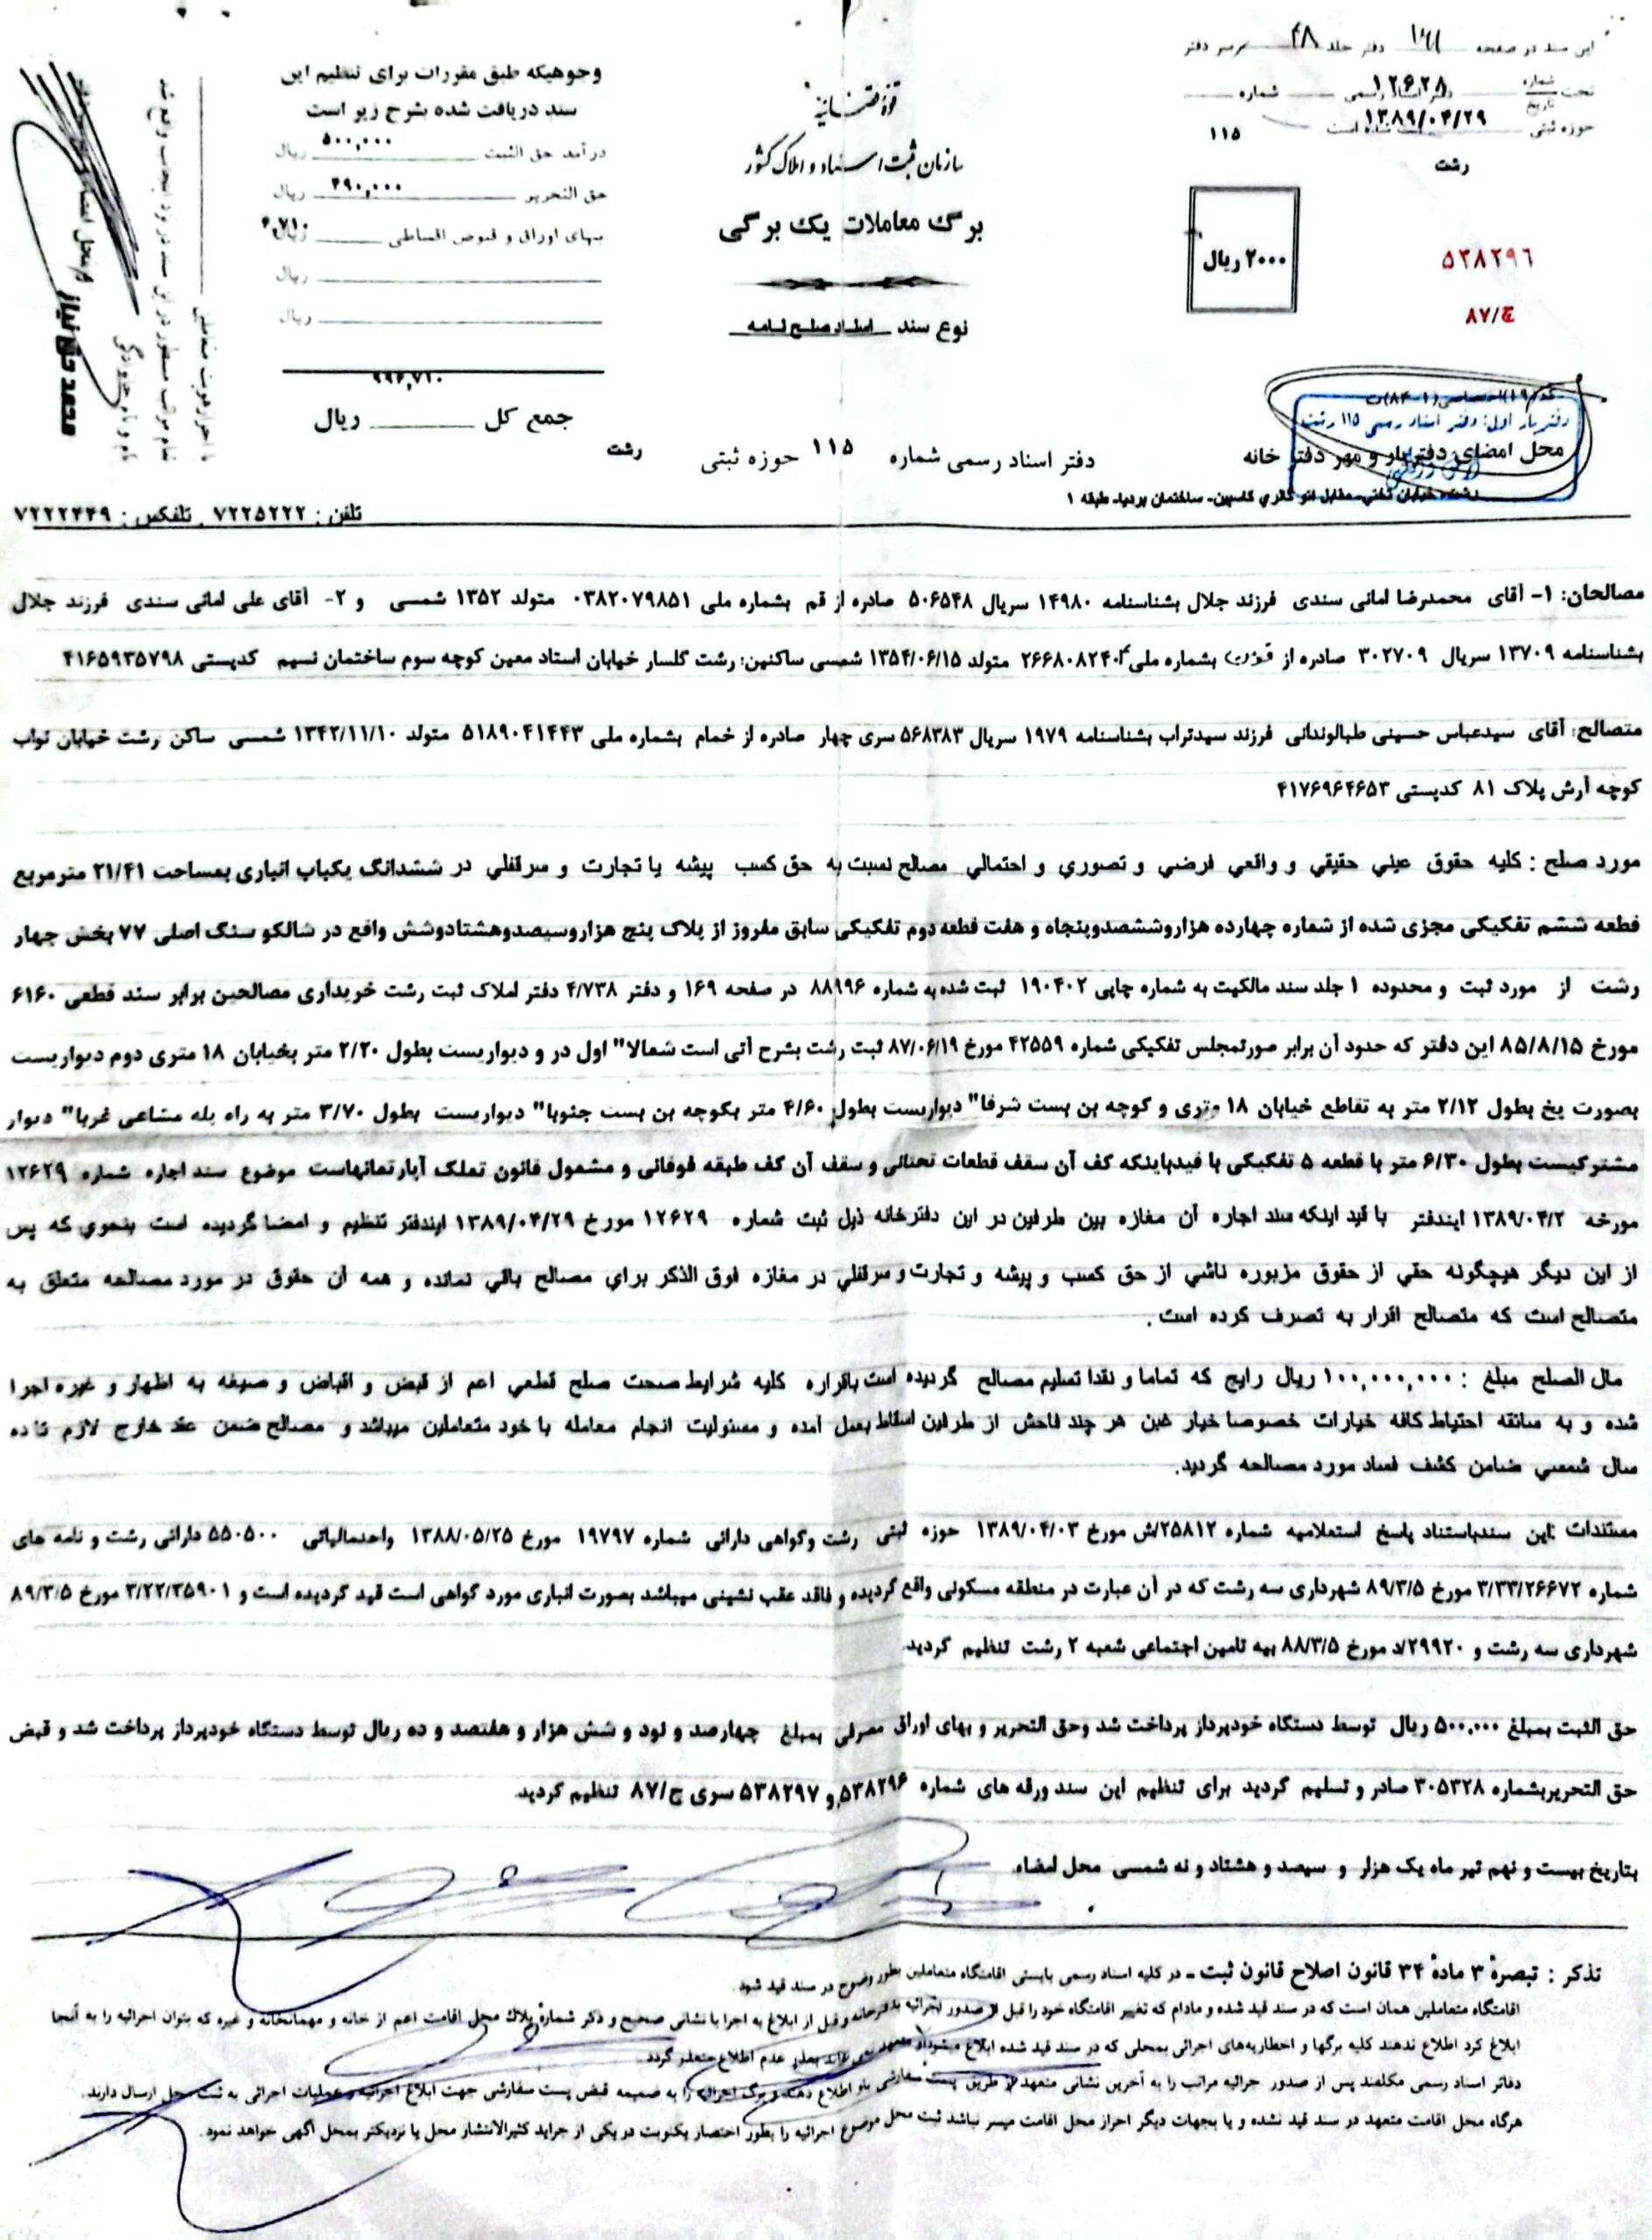 این سند در صفحه ۱۳۱ دفتر جلد ۴۸ سردفتر
تحت شماره ۱۲۶۲۸ دفتر اسناد رسمی شماره
تاریخ ۱۳۸۹/۰۴/۲۹ است
حوزه ثبتی ۱۱۵
رشت
۵۳۸۲۹۶
ج/۸۷
۲۰۰۰ ریال
قوه قضائیه
سازمان ثبت اسناد و املاک کشور
برگ معاملات یک برگی
نوع سند اسناد صلح نامه
وجوهیکه طبق مقررات برای تنظیم این
سند دریافت شده بشرح زیر است
درآمد حق الثبت ۵۰۰,۰۰۰ ریال
حق التحریر ۴۹۰,۰۰۰ ریال
بهای اوراق و قبوض اقساطی ۶,۷۱۰ ریال
ریال
ریال
۹۹۶,۷۱۰
جمع کل ریال
با احراز هویت متعاملین
تمام مراتب مسطور در این سند در نزد اینجانب واقع شد
نام و نام خانوادگی
محل امضاء
محمد حق نیاز
دفتریار اول: دفتر اسناد رسمی ۱۱۵ رشت
محل امضای دفتریار و مهر دفتر خانه
دفتر اسناد رسمی شماره ۱۱۵ حوزه ثبتی رشت
رشت- خیابان تختی- مقابل اتو گالری کاسپین- ساختمان پردیا- طبقه ۱
تلفن : ۷۲۲۵۲۲۲ تلفکس : ۷۲۲۲۴۴۹
مصالحان: ۱- آقای محمدرضا امانی سندی فرزند جلال بشناسنامه ۱۴۹۸۰ سریال ۵۰۶۵۴۸ صادره از قم بشماره ملی ۰۳۸۲۰۷۹۸۵۱ متولد ۱۳۵۲ شمسی و ۲- آقای علی امانی سندی فرزند جلال
بشناسنامه ۱۳۷۰۹ سریال ۳۰۲۷۰۹ صادره از بشماره ملی متولد ۱۳۵۴/۰۶/۱۵ شمسی ساکنین: رشت گلسار خیابان استاد معین کوچه سوم ساختمان نسیم کدپستی ۴۱۶۵۹۳۵۷۹۸
متصالح: آقای سیدعباس حسینی طبالوندانی فرزند سیدتراب بشناسنامه ۱۹۷۹ سریال ۵۶۸۳۸۳ سری چهار صادره از خمام بشماره ملی ۵۱۸۹۰۴۱۴۴۳ متولد ۱۳۴۲/۱۱/۱۰ شمسی ساکن رشت خیابان نواب
کوچه آرش پلاک ۸۱ کدپستی ۴۱۷۶۹۶۴۶۵۳
مورد صلح : کلیه حقوق عیني حقیقي و واقعي فرضي و تصوري و احتمالي مصالح نسبت به حق کسب پیشه یا تجارت و سرقفلي در ششدانگ یکباب انباری بمساحت ۲۱/۴۱ مترمربع
قطعه ششم تفکیکی مجزی شده از شماره چهارده هزاروششصدوپنجاه و هفت قطعه دوم تفکیکی سابق مفروز از پلاک پنج هزاروسیصدوهشتادوشش واقع در شالکو سنگ اصلی ۷۷ بخش چهار
رشت از مورد ثبت و محدوده ۱ جلد سند مالکیت به شماره چاپی ۱۹۰۴۰۲ ثبت شده به شماره ۸۸۹۹۶ در صفحه ۱۶۹ و دفتر ۴/۷۳۸ دفتر املاک ثبت رشت خریداری مصالحین برابر سند قطعی ۶۱۶۰
مورخ ۸۵/۸/۱۵ این دفتر که حدود آن برابر صورتمجلس تفکیکی شماره ۴۲۵۵۹ مورخ ۸۷/۰۶/۱۹ ثبت رشت بشرح آتی است شمالا" اول در و دیواریست بطول ۲/۲۰ متر بخیابان ۱۸ متری دوم دیواریست
بصورت پخ بطول ۲/۱۲ متر به تقاطع خیابان ۱۸ متری و کوچه بن بست شرقا" دیواریست بطول ۴/۶۰ متر بکوچه بن بست جنوبا" دیواریست بطول ۳/۷۰ متر به راه پله مشاعی غربا" دیوار
مشترکیست بطول ۶/۳۰ متر با قطعه ۵ تفکیکی با قیدباینکه کف آن سقف قطعات تحتانی و سقف آن کف طبقه فوقانی و مشمول قانون تملک آپارتمانهاست موضوع سند اجاره شماره ۱۲۶۲۹
مورخه ۱۳۸۹/۰۴/۲ ایندفتر با قید اینکه سند اجاره آن مغازه بین طرفین در این دفترخانه ذیل ثبت شماره ۱۲۶۲۹ مورخ ۱۳۸۹/۰۴/۲۹ ایندفتر تنظیم و امضا گردیده است بنحوي که پس
از این دیگر هیچگونه حقي از حقوق مزبوره ناشي از حق کسب و پیشه و تجارت و سرقفلي در مغازه فوق الذکر براي مصالح باقي نمانده و همه آن حقوق در مورد مصالحه متعلق به
متصالح است که متصالح اقرار به تصرف کرده است .
مال الصلح مبلغ : ۱۰۰,۰۰۰,۰۰۰ ریال رایج که تماما و نقدا تسلیم مصالح گردیده است باقراره کلیه شرایط صحت صلح قطعي اعم از قبض و اقباض و صیغه به اظهار و غیره اجرا
شده و به صانقه احتیاط کافه خیارات خصوصا خیار غبن هر چند فاحش از طرفین اسقاط بعمل آمده و مسئولیت انجام معامله با خود متعاملین میباشد و مصالح ضمن عقد خارج لازم تا ده
سال شمسي ضامن کشف فساد مورد مصالحه گردید.
مستندات :این سندباستناد پاسخ استعلامیه شماره ۲۵۸۱۲/ش مورخ ۱۳۸۹/۰۴/۰۳ حوزه ثبتی رشت وگواهی دارائی شماره ۱۹۷۹۷ مورخ ۱۳۸۸/۰۵/۲۵ واحدمالیاتی ۵۵۰۵۰۰ دارائی رشت و نامه های
شماره ۳/۳۳/۲۶۶۷۲ مورخ ۸۹/۳/۵ شهرداری سه رشت که در آن عبارت در منطقه مسکونی واقع گردیده و فاقد عقب نشینی میباشد بصورت انباری مورد گواهی است قید گردیده است و ۳/۲۲/۲۵۹۰۱ مورخ ۸۹/۳/۵
شهرداری سه رشت و ۲۹۹۲۰/د مورخ ۸۸/۳/۵ بیه تامین اجتماعی شعبه ۲ رشت تنظیم گردید.
حق الثبت بمبلغ ۵۰۰,۰۰۰ ریال توسط دستگاه خودپرداز پرداخت شد وحق التحریر و بهای اوراق مصرفی بمبلغ چهارصد و نود و شش هزار و هفتصد و ده ریال توسط دستگاه خودپرداز پرداخت شد و قبض
حق التحریربشماره ۳۰۵۳۲۸ صادر و تسلیم گردید برای تنظیم این سند ورقه های شماره ۵۳۸۲۹۶ و ۵۳۸۲۹۷ سری ج/۸۷ تنظیم گردید.
بتاریخ بیست و نهم تیر ماه یک هزار و سیصد و هشتاد و نه شمسی محل امضاء
تذکر : تبصرهٔ ۳ مادهٔ ۳۴ قانون اصلاح قانون ثبت ـ در کلیه اسناد رسمی بایستی اقامتگاه متعاملین بطور وضوح در سند قید شود.
اقامتگاه متعاملین همان است که در سند قید شده و مادام که تغییر اقامتگاه خود را قبل از صدور اجرائیه بدفترخانه و قبل از ابلاغ به اجرا با نشانی صحیح و ذکر شمارهٔ پلاک محل اقامت اعم از خانه و مهمانخانه و غیره که بتوان اجرائیه را به آنجا
ابلاغ کرد اطلاع ندهند کلیه برگها و اخطاریه‌های اجرائی بمحلی که در سند قید شده ابلاغ میشود و متعهد نمی تواند بعذر عدم اطلاع متعذر گردد.
دفاتر اسناد رسمی مکلفند پس از صدور اجرائیه مراتب را به آخرین نشانی متعهد از طریق پست سفارشی باو اطلاع دهند و برگ اجرائیه را به ضمیمه قبض پست سفارشی جهت ابلاغ اجرائیه و عملیات اجرائی به ثبت محل ارسال دارند.
هرگاه محل اقامت متعهد در سند قید نشده و یا بجهات دیگر احراز محل اقامت میسر نباشد ثبت محل موضوع اجرائیه را بطور اختصار یکنوبت در یکی از جراید کثیرالانتشار محل یا نزدیکتر بمحل آگهی خواهد نمود.